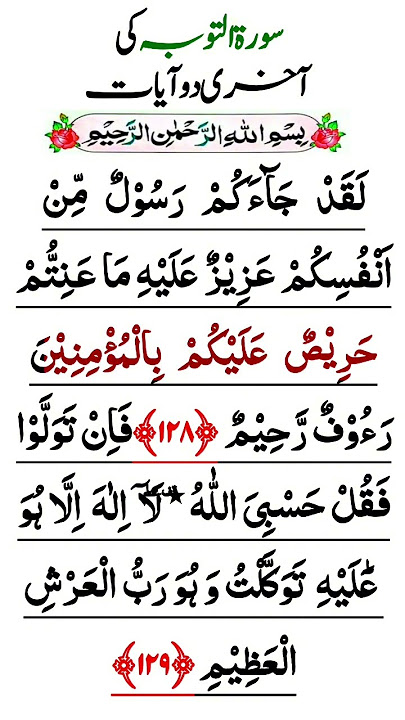 سورۃ التوبہ کی
آخری دو آیات
بِسْمِ اللهِ الرَّحْمٰنِ الرَّحِيْمِ
لَقَدْ جَآءَكُمْ رَسُوْلٌ مِّنْ
اَنْفُسِكُمْ عَزِيْزٌ عَلَيْهِ مَا عَنِتُّمْ
حَرِيْصٌ عَلَيْكُمْ بِالْمُؤْمِنِيْنَ
رَءُوْفٌ رَّحِيْمٌ ﴿١٢٨﴾ فَاِنْ تَوَلَّوْا
فَقُلْ حَسْبِيَ اللّٰهُ لَآ اِلٰهَ اِلَّا هُوَ
عَلَيْهِ تَوَكَّلْتُ وَهُوَ رَبُّ الْعَرْشِ
الْعَظِيْمِ ﴿١٢٩﴾